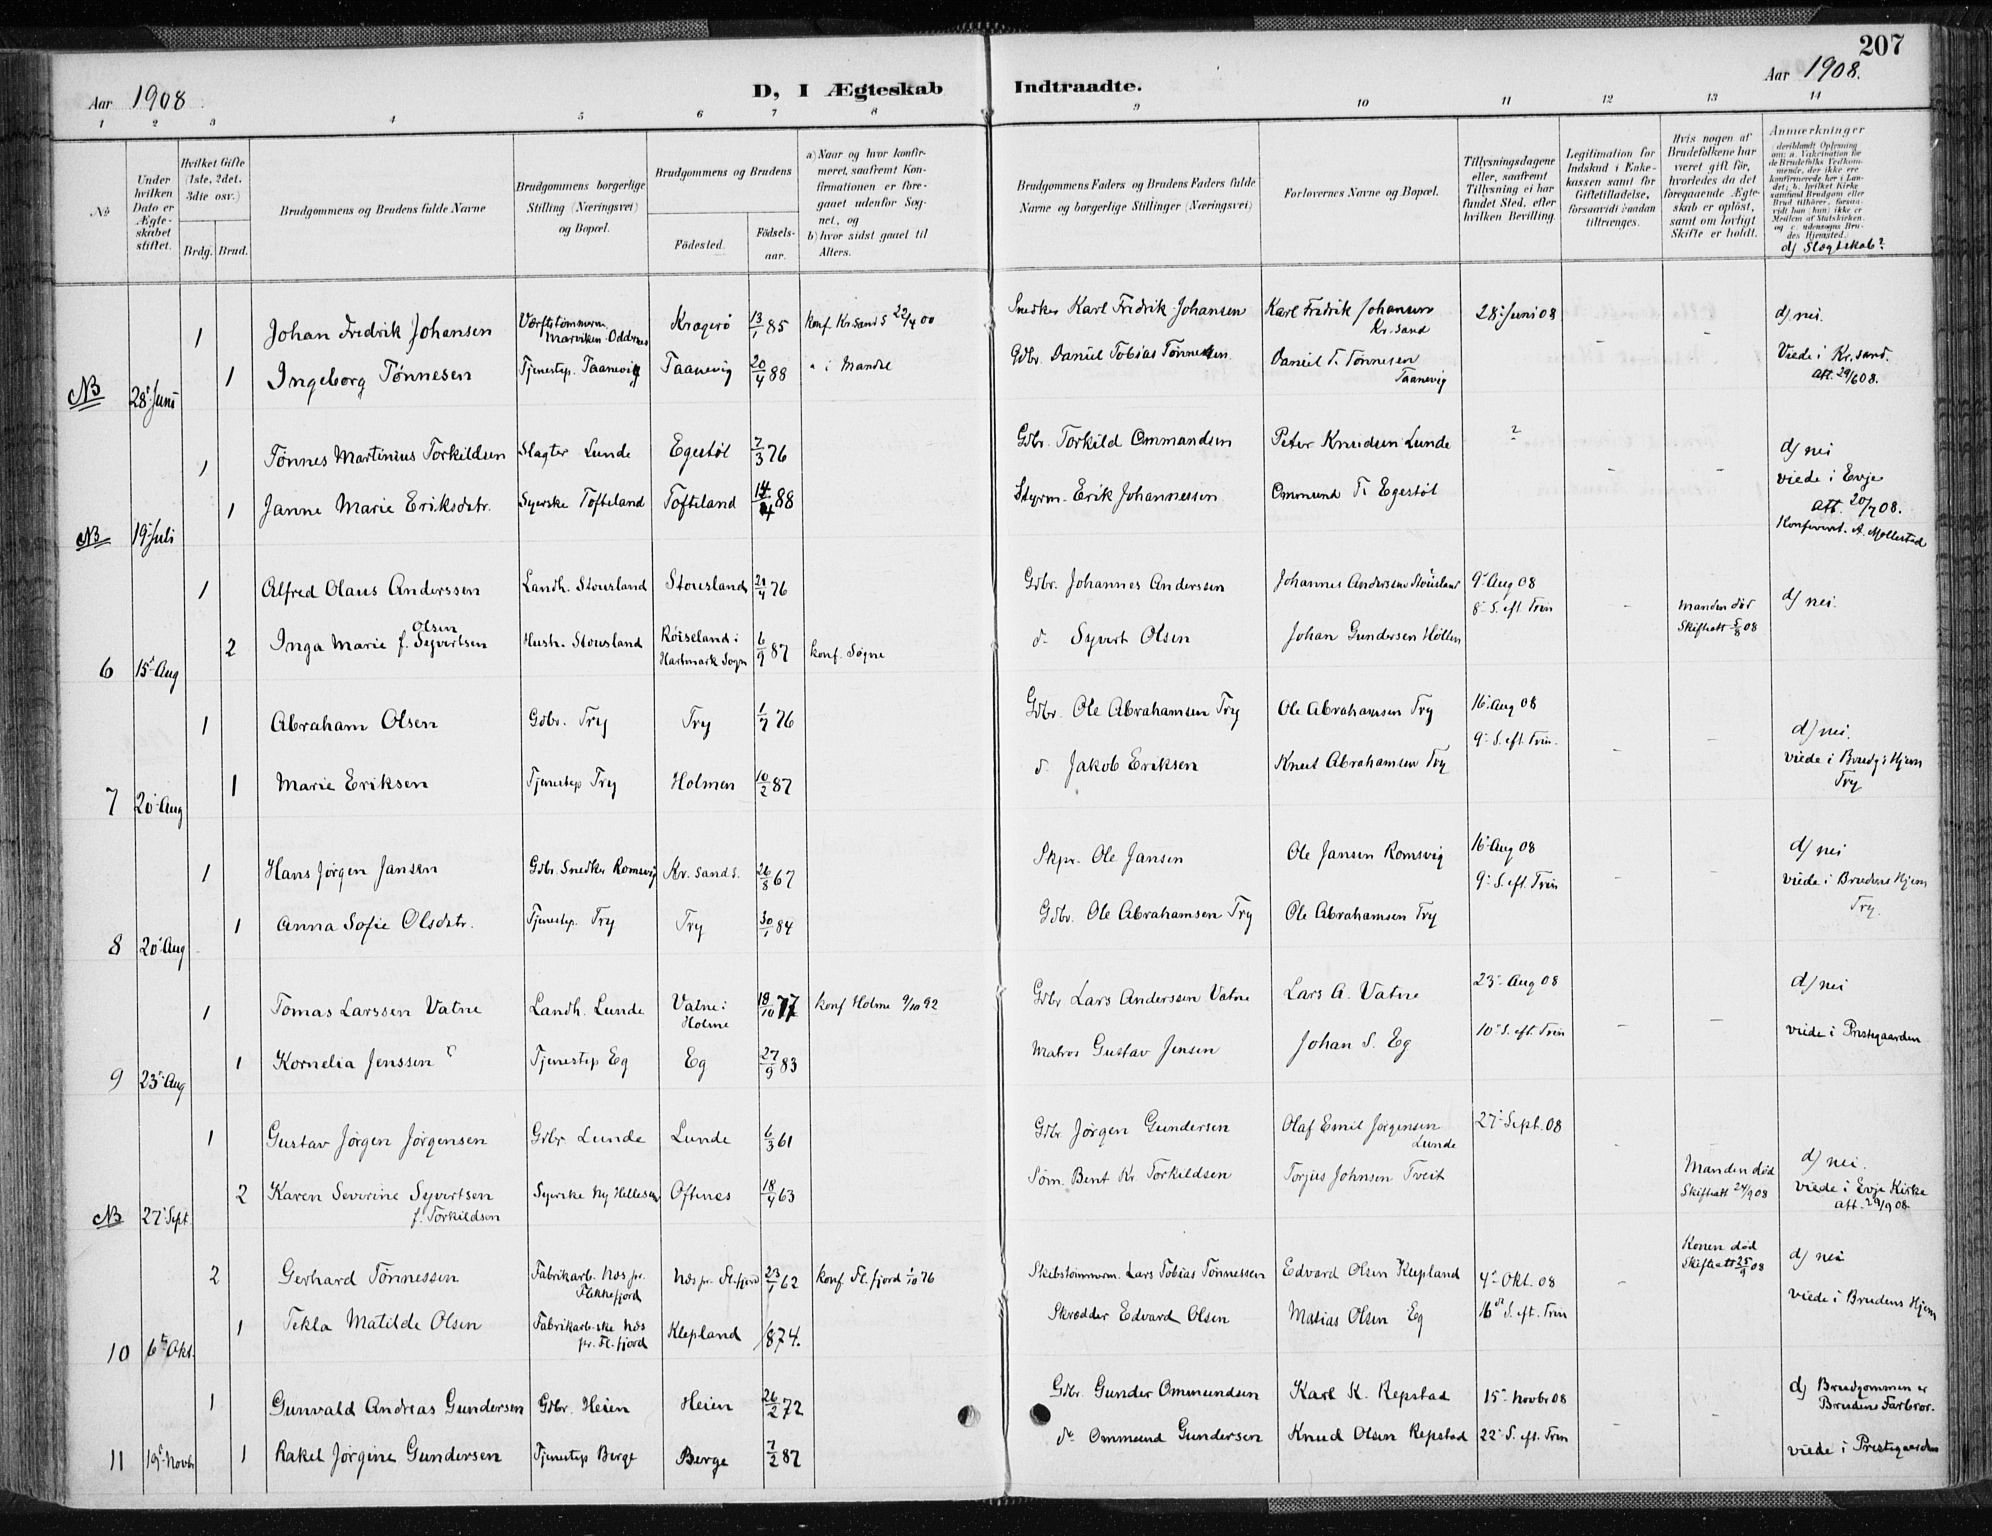 207
Aar 1908.
D, I Ægteskab Indtraadte.
Aar 1908.
1 2 3 4 5 6 7 8 9 10 11 12 13 14
№
Under hvilken Dato er Ægteskabet stiftet.
Hvilket Gifte (1ste, 2det, 3die osv.)
Brdg. Brud.
Brudgommens og Brudens fulde Navne
Brudgommens borgerlige Stilling (Næringsvei) og Bopæl.
Brudgommens og Brudens
Fødested. Fødselsaar.
a) Naar og hvor konfirmeret, saafremt Konfirmationen er foregaaet udenfor Sognet, og
b) hvor sidst gaaet til Alters.
Brudgommens Faders og Brudens Faders fulde Navne og borgerlige Stillinger (Næringsvei)
Forlovernes Navne og Bopæl.
Tillysningsdagene eller, saafremt Tillysning ei har fundet Sted, efter hvilken Bevilling.
Legitimation for Indskud i Enkekassen samt for Giftetilladelse, forsaavidt saadan tiltrænges.
Hvis nogen af Brudefolkene har været gift før, hvorledes da det foregaaende Ægteskab er opløst, samt om lovligt Skifte er holdt.
Anmærkninger
deriblandt Oplysning om: a. Vakcination for de Brudefolks Vedkommende, der ikke ere konfirmerede her i Landet; b. hvilket Kirkesamfund Brudgom eller Brud tilhører, forsaavidt han (hun) ikke er Medlem af Statskirken, og c. udensogns Brudes Hjemsted.
d) Slægtskab?
1 Johan Fredrik Johansen Værftstømmerm. Marviken Oddernes Kragerø 13/1 85 konf. Kr.sand S 22/4 00 Snedker Karl Fridrik Johansen Karl Fridrik Johansen Kr.sand 28' Juni 08 - - d) nei.
NB 28' Juni 1 Ingeborg Tønnesen Tjenestep. Taanevig Taanevig 20/4 88 " i Mandal Gdbr. Daniel Tobias Tønnesen. Daniel T. Tønnesen Taanevig Viede i Kr.sand. att. 29/6 08.
1 Tønnes Martinius Torkildsen Slagter Lunde Egestøl 7/3 76 Gdbr. Torkild Ommundsen Peter Knudsen Lunde ? - - d) nei
NB 19' Juli 1 Janne Marie Eriksdtr. Syerske Tofteland Tofteland 14/4 88 Styrm. Erik Johannessen Ommund T. Egestøl viede i Evje att. 20/7 08. Konfererst. A. Mollestad
1 Alfred Olaus Anderssen Landh. Stousland Stousland 20/4 76 Gdbr. Johannes Anderssen Johannes Anderssen Stousland 9' Aug 08 8' S. eft. Trin - d) nei.
6 15' Aug 2 Inga Marie Olsen f. Syvertsen Hush. Stousland Røiseland i Hartmark Sogn 6/9 87 konf. Søgne do Syvert Olsen Johan Gundersen Høllen Manden død Skifteatt 5/8 08
1 Abraham Olsen Gdbr. Try Try 1/7 76 Gdbr. Ole Abrahamsen Try Ole Abrahamsen Try 16' Aug 08 9' S. eft. Trin. - - d) nei.
7 20' Aug 1 Marie Eriksen Tjenestep Try Holmen 10/2 87 do Jakob Eriksen Knut Abrahamsen Try viede i Brudg's Hjem Try
1 Hans Jørgen Jansen Gdbr. Snedker Romsvig Kr. sand S. 26/8 67 Skpr. Ole Jansen Ole Jansen Romsvig 16' Aug 08 9' S. eft. Trin - - d) nei
8 20' Aug 1 Anna Sofie Olsdtr. Tjenestep. Try Try 30/1 84 Gdbr. Ole Abrahamsen Try Ole Abrahamsen Try viede i Brudens Hjem Try.
1 Tomas Larssen Vatne Landh. Lunde Vatne i Holme 18/10 77 konf Holme 9/10 92 Gdbr Lars Anderssen Vatne Lars A. Vatne 23' Aug 08 10' S. eft Trin - - d) nei
9 23' Aug 1 Kornelia Jenssen Tjenestep Eg Eg 27/9 83 Matros Gustav Jensen Johan S. Eg viede i Prestegaarden
1 Gustav Jørgen Jørgensen Gdbr Lunde Lunde 6/3 61 Gdbr Jørgen Gundersen Olaf Emil Jørgensen Lunde 27' Sept. 08 - d) nei.
NB 27' Sept 2 Karen Severine Syvertsen f. Torkildsen Syerske Ny Hellesund Oftenes 18/4 63 Søm. Bent Kr Torkildsen Torjus Johnsen Tveit Manden død Skifteatt 24/9 08 viede i Evje Kirke att. 29/9 08.
2 Gerhard Tønnessen Fabrikarb. Næs pr. Flekkefjord Næs pr. Fl.fjord 23/1 62 konf Fl.fjord 1/10 76 Skibstømmerm. Lars Tobias Tønnessen Edvard Olsen Klepland 4' Okt. 08 16de S. eft. Trin - Konen død Skifteatt 25/9 08 d) nei
10 6te Okt. 1 Tekla Matilde Olsen Fabrikarb.ske Næs pr. Fl.fjord Klepland 1/8 74. Skrædder Edvard Olsen Matias Olsen Eg viede i Brudens Hjem
1 Gunvald Andreas Gundersen Gdbr. Heien Heien 26/2 72 Gdbr. Gunder Ommundsen Karl K. Repstad 15' Novbr 08 - - d) Brudgommen er Brudens Farbror.
11 19' Novbr 1 Rakel Jørgine Gundersen Tjenestep Berge Berge 7/2 87 do Ommund Gundersen Knud Olsen Repstad 22' S. eft. Trin viede i Prestegaarden